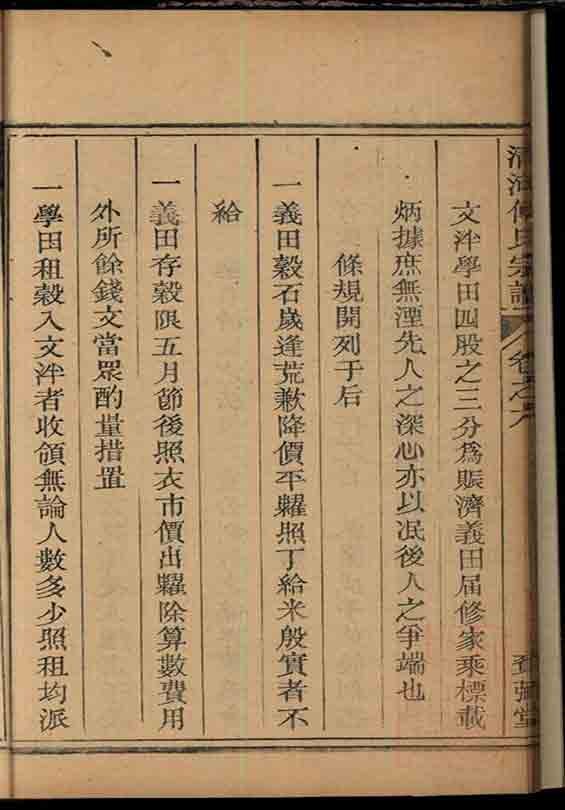 清河傅氏宗譜 卷之六
文泮學田四股之三分爲賑濟義田届修家乘標載
炳據庶無湮先人之深心亦以泯後人之爭端也
條規開列于后
一義田穀石歲逢荒歉降價平糶照丁給米殷實者不
給
一義田存穀限五月節後照衣市價出糶除算數費用
外所餘錢文當眾酌量措置
一學田租穀入文泮者收領無論人數多少照租均派